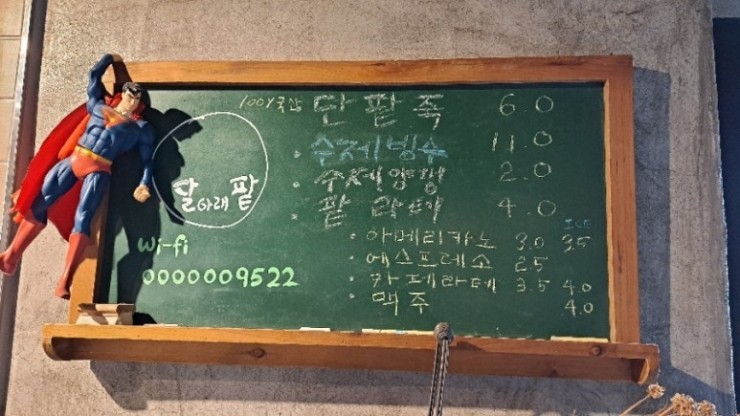 100% 국산 단팥죽 6.0
· 수제빙수 11.0
· 수제양갱 2.0
· 팥라떼 4.0
달아래팥
ICE
· 아메리카노 3.0 3.5
· 에스프레소 2.5
· 카페라떼 3.5 4.0
· 맥주 4.0
Wi-fi
0000009522